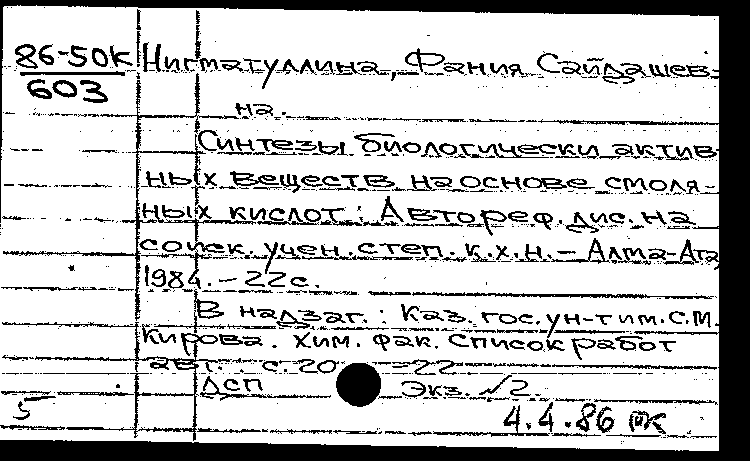 86-50К Нигматуллина, Фания Сайдашев-
603
на.
Синтезы биологически актив-
ных веществ на основе смоля-
ных кислот: Автореф. дис. на
соиск. учен. степ. к.х.н. - Алма-Ата,
1984. - 22с.
В надзаг.: Каз. гос. ун-т им. С.М.
Кирова. Хим. фак. Список работ
авт.: с. 20-22
ДСП Экз. №2.
5
4.4.86